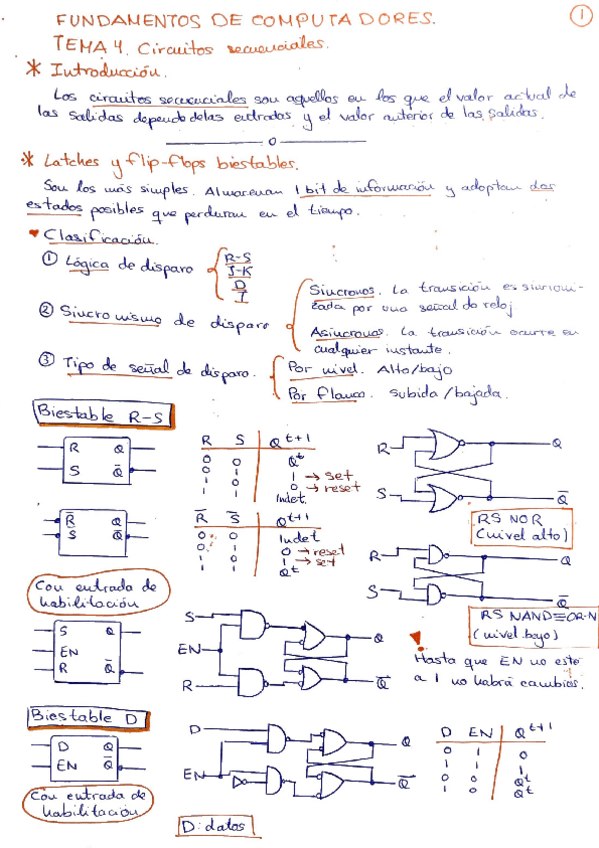 FUNDAMENTOS DE COMPUTADORES.
1
TEMA 4. Circuitos secuenciales.
* Introducción.
Los circuitos secuenciales son aquellos en los que el valor actual de
las salidas depende de las entradas y el valor anterior de las salidas.
* Latches y flip-flops biestables.
Son los más simples. Almacenan 1 bit de información y adoptan dos
estados posibles que perduran en el tiempo.
Clasificación.
① Lógica de disparo
R-S
J-K
D
T
② Sincronismo de disparo
Síncronos. La transición es sincroni-
zada por una señal de reloj
Asíncronos. La transición ocurre en
cualquier instante.
③ Tipo de señal de disparo.
Por nivel. Alto/bajo
Por flanco. subida/bajada.
Biestable R-S
R Q
S Q̅
R S Q^t+1
0 0 Q^t
0 1 1 → set
1 0 0 → reset
1 1 Indet.
R Q
S Q̅
RS NOR
(nivel alto)
R̅ Q
S̅ Q̅
R̅ S̅ Q^t+1
0 0 Indet
0 1 0 → reset
1 0 1 → set
1 1 Q^t
R Q
S Q̅
RS NAND≡OR-N
(nivel bajo)
Con entrada de
habilitación
S Q
EN
R Q̅
S
EN
R
Q
Q̅
!
Hasta que EN no esté
a 1 no habrá cambios.
Biestable D
D Q
EN Q̅
Con entrada de
habilitación
D
EN
Q
Q̅
D: datos
D EN Q^t+1
0 1 0
1 1 1
0 0 Q^t
1 0 Q^t